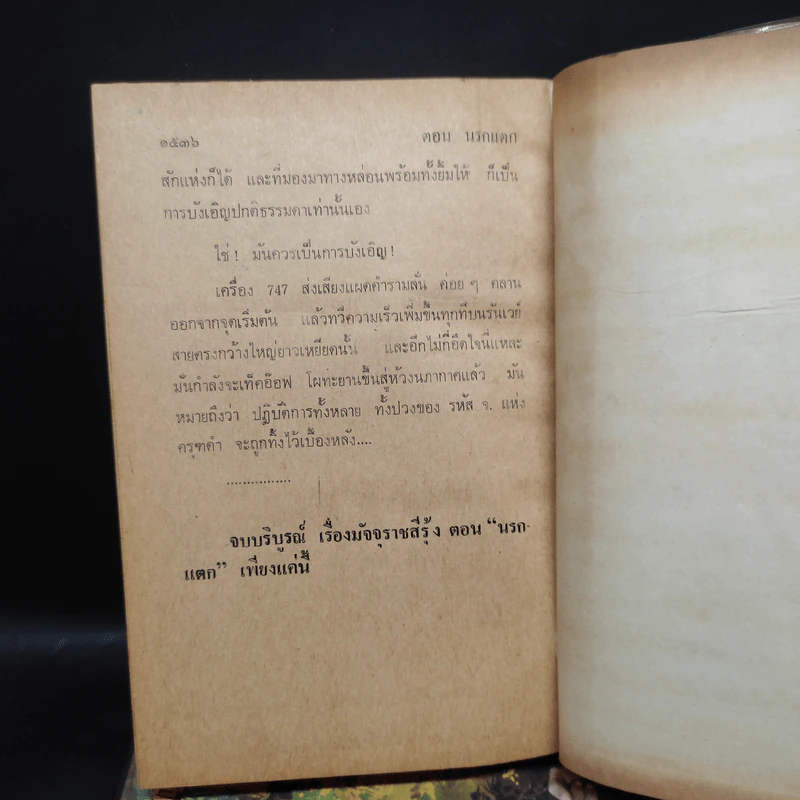 ๑๕๓๖ ตอน นรกแตก
สักแห่งก็ได้ และที่มองมาทางหล่อนพร้อมทั้งยิ้มให้ ก็เป็น
การบังเอิญปกติธรรมดาเท่านั้นเอง
ใช่ ! มันควรเป็นการบังเอิญ !
เครื่อง 747 ส่งเสียงแผดคำรามลั่น ค่อย ๆ คลาน
ออกจากจุดเริ่มต้น แล้วทวีความเร็วเพิ่มขึ้นทุกทีบนรันเวย์
สายตรงกว้างใหญ่ยาวเหยียดนั้น และอีกไม่กี่อึดใจนี่แหละ
มันกำลังจะเท็คอ๊อฟ โผทะยานขึ้นสู่ห้วงนภากาศแล้ว มัน
หมายถึงว่า ปฏิบัติการทั้งหลาย ทั้งปวงของ รหัส จ. แห่ง
ครุฑดำ จะถูกทิ้งไว้เบื้องหลัง....
................
จบบริบูรณ์ เรื่องมัจจุราชสีรุ้ง ตอน “นรก-
แตก” เพียงแค่นี้